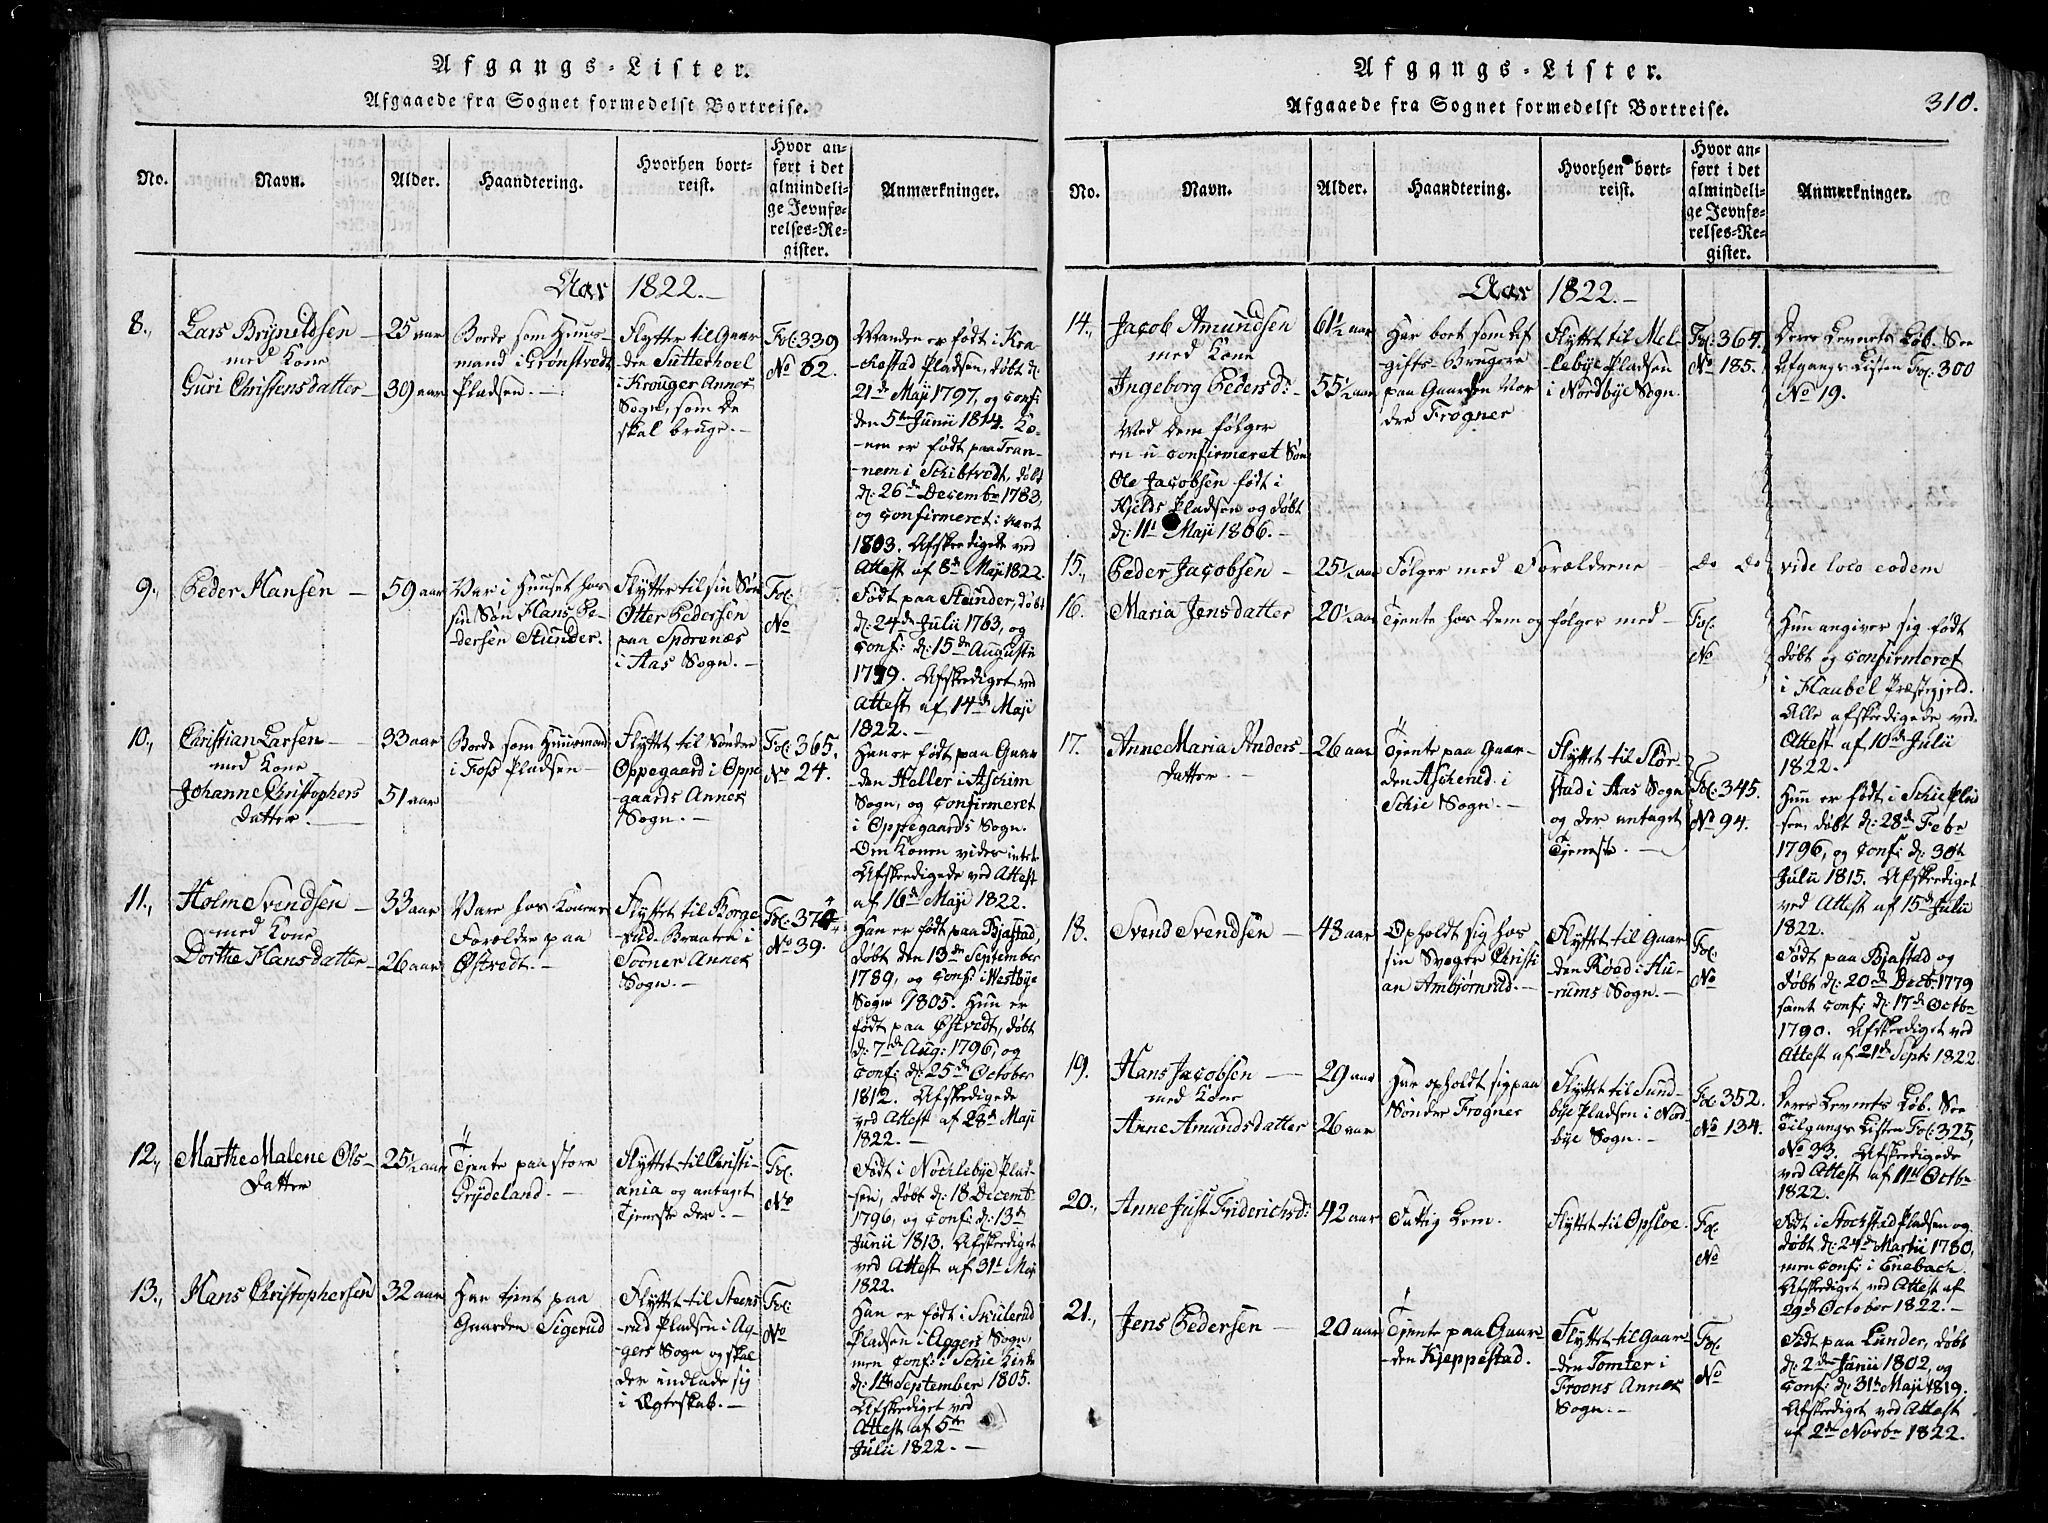 Afgangs-Lister.
Afgaaede fra Sognet formedelst Bortreise.
No.
Navn.
Alder.
Haandtering.
Hvorhen bort-
reist.
Hvor an-
ført i det
almindeli-
ge Jevnfø-
relses-Re-
gister.
Anmærkninger.
Aar 1822.
8.,
Lars Brynildsen
med Kone
Guri Christensdatter
25 aar
39 aar
Boede som Huus-
mand i Grønstvedt
Pladsen.
Flytter til Gaar
den Sutterhoel
i Krouger Annex
Sogn, som De
skal bruge.
Fol: 339
No 62.
Manden er født i Kra-
-kostad Pladsen, døbt d:
21de Maji 1797, og Conf:
den 5te Junii 1814. Ko-
-nen er født paa Tran-
-nem i Schibtvedt, døbt
d: 26de Decembr 1783,
og Confirmeret i Aaret
1803. Afskeedigede ved
Attest af 8de Maji 1822.
9.,
Peder Hansen
59 aar
Var i Huuset hos
sin Søn Hans Pe-
dersen Stunder.
Flytter til sin Søn
Otter Pedersen
paa Sporenæs
i Aas Sogn.
Fol:
No
Født paa Stunder, døbt
d: 24de Julii 1763, og
Conf: d: 15de Augustii
1779. Afskeediget ved
Attest af 14de Maji
1822.
10.,
Christian Larsen
med Kone
Johanne Christophers
datter.
33 aar
51 aar
Boede som Huusmand
i Foss Pladsen
Flyttet til Søndre
Oppegaard i Oppe
-gaards Annex
Sogn.
Fol: 365.
No 24.
Han er født paa Gaar
den Heller i Aschim
Sogn, og Confirmeret
i Oppegaards Sogn.
Om Konen vides intet
Afskeedigede ved Attest
af 16de Maji 1822.
11.,
Holm Svendsen
med Kone
Dorthe Hansdatter
33 aar
26 aar
Vare hos Konens
Forældre paa
Østvedt.
Flyttet til Borge
-rud-Braaten i
Sooner Annex
Sogn.
Fol: 374
No 39.
Han er født paa Bjastad,
døbt den 13de September
1789, og Conf: i Westbye
Sogn 1805. Hun er
født paa Østvedt, døbt
d: 7de Aug: 1796, og
Conf: d: 25de October
1812. Afskeedigede
ved Attest af 28de Maji
1822.
12.,
Marthe Malene Ols-
datter
25½ aar
Tjente paa store
Grydeland.
Flyttet til Christi-
ania og antaget
Tjeneste der.
Fol:
No
Født i Nøchlebye Plad-
sen, døbt d: 18 Decemb:
1796, og Conf: d: 13de
Junii 1813. Afskeediget
ved Attest af 31te Maji
1822.
13.,
Hans Christophersen
32 aar
Har tjent paa
Gaarden Sigerud
Flyttet til Steens
-rud Pladsen i Ag-
gers Sogn og skal
der indlade sig
i Ægteskab.
Fol:
No
Han er født i Skulerud
Pladsen i Aggers Sogn,
men Conf: i Schie Kirke
d: 1te September 1805.
Afskeediget ved
Attest af 5te
Julii 1822.
Afgangs-Lister.
Afgaaede fra Sognet formedelst Bortreise.
310.
No.
Navn.
Alder.
Haandtering.
Hvorhen bort-
reist.
Hvor an-
ført i det
almindeli-
ge Jevnfø-
relses-Re-
gister.
Anmærkninger.
Aar 1822.
14.,
Jacob Amundsen
med Kone
Ingeborg Pedersd:
Med Dem følger
en u confirmeret Søn
Ole Jacobsen født i
Kjelds Pladsen og døbt
d: 11te Maji 1806.
61½ aar
55½ aar
Har boet som Af
gifts-Brugere
paa Gaarden Nor
dre Frogner
Flyttet til Mel
lebye Pladsen
i Nordbye Sogn.
Fol: 364,
No 185.
Deres Levnets Løb. See
Afgangs Listen Fol: 300
No 19.
15.,
Peder Jacobsen
25½ aar
Følger med Forældrene
do do
vide loco eodem
16.
Maria Jensdatter
20½ aar
Tjente hos Dem og følger med
Fol.
No
Hun angiver sig født
døbt og Confirmeret
i Haabel Præstegjeld.
Alle afskeedigede ved
Attest af 10de Julii
1822.
17.
Anne Maria Anders-
datter.
26 aar
Tjente paa Gaar-
den Ascherud i
Schie Sogn.
Flyttet til Slør
stad i Aas Sogn
og der antaget
Tjeneste.
Fol: 345.
No 94.
Hun er født i Schie Plad
sen, døbt d: 28de Febr
1796, og Conf: d: 30te
Julii 1815. Afskeediget
ved Attest af 15de Julii
1822.
18.
Svend Svendsen
43 aar
Opholdt sig hos
sin Svoger Christi
an Ambjørnrud.
Flyttet til Gaar
den Røed i Hu-
-rums Sogn.
Fol.
No
Født paa Bjastad og
døbt d: 20de Decbr 1779
samt Conf: d: 17de Octbr
1790. Afskeediget ved
Attest af 21de Sept: 1822
19.
Hans Jacobsen
med Kone
Anne Amundsdatter
29 aar
26 aar
Har opholdt sig paa
Sønder Frogner
Flyttet til Sund-
bye Pladsen i Nord
bye Sogn.
Fol 352.
No 134.
Deres Levnets Løb. See
Tilgangs Listen Fol: 325,
No 33. Afskeedigede
ved Attest af 11te Octbr
1822.
20.,
Anne Just Friderichsd:
42 aar
Fattig Lem.
Flyttet til Opsloe.
Fol
No
Født i Stochstad Pladsen og
døbt d: 24de Martii 1780,
men Conf: i Enebach.
Afskeediget ved Attest af
29de October 1822.
21.,
Jens Pedersen
20 aar
Tjente paa Gaar-
-den Kjeppestad.
Flyttet til Gaar-
den Tomter i
Froens Annex
Sogn.
Fol.
No
Født paa Lunder, døbt
d: 2den Junii 1802, og
Conf: d: 31te Maji 1819.
Afskeediget ved Attest
af 2den Novbr 1822.